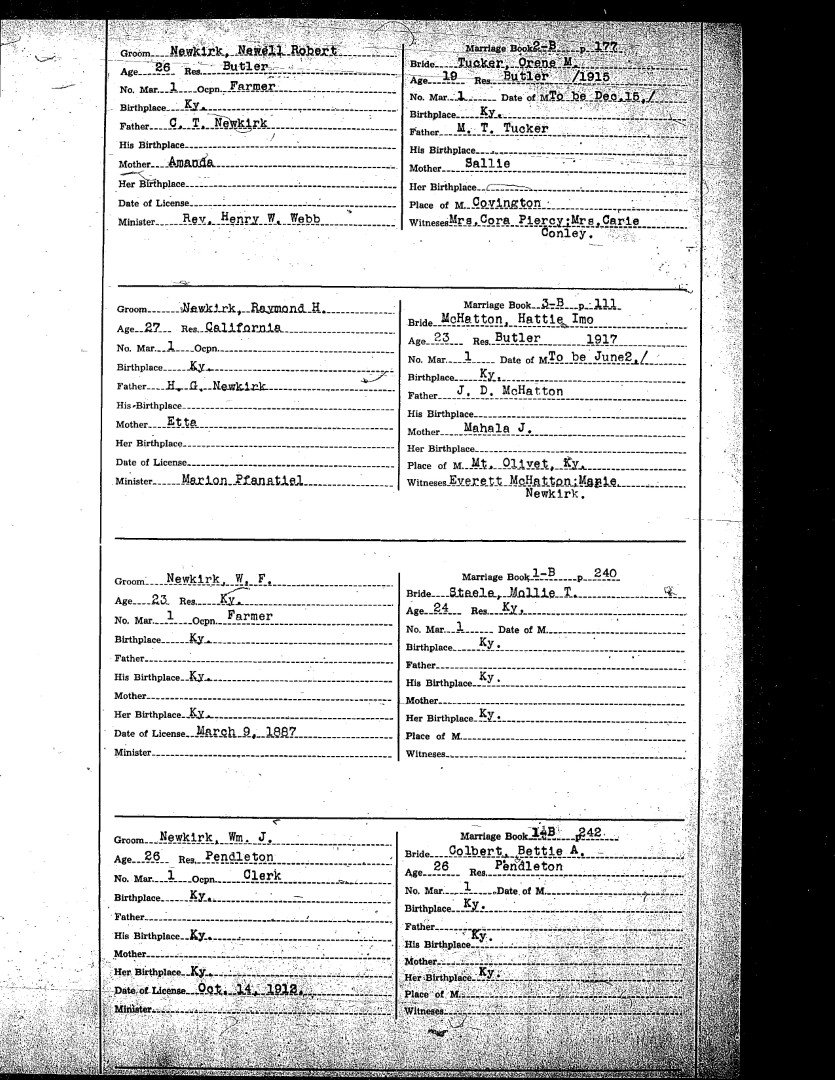 Groom Newkirk, Newell Robert
Age 26 Res. Butler
No. Mar. 1 Ocpn. Farmer
Birthplace Ky.
Father C. T. Newkirk
His Birthplace
Mother Amanda
Her Birthplace
Date of License
Minister Rev. Henry W. Webb
Marriage Book 2-B p. 177
Bride Tucker, Orene M.
Age 19 Res. Butler /1915
No. Mar. 1 Date of M. To be Dec.15,/
Birthplace Ky.
Father M. T. Tucker
His Birthplace
Mother Sallie
Her Birthplace
Place of M. Covington
Witneses Mrs.Cora Piercy;Mrs.Carie
Conley.
Groom Newkirk, Raymond H.
Age 27 Res. California
No. Mar. 1 Ocpn.
Birthplace Ky.
Father H. G. Newkirk
His Birthplace
Mother Etta
Her Birthplace
Date of License
Minister Marion Pfanstiel
Marriage Book 3-B p. 111
Bride McHatton, Hattie Imo
Age 23 Res. Butler 1917
No. Mar. 1 Date of M. To be June2,/
Birthplace Ky.
Father J. D. McHatton
His Birthplace
Mother Mahala J.
Her Birthplace
Place of M. Mt. Olivet, Ky.
Witneses Everett McHatton;Marie
Newkirk.
Groom Newkirk, W. F.
Age 23 Res. Ky.
No. Mar. 1 Ocpn. Farmer
Birthplace Ky.
Father
His Birthplace Ky.
Mother
Her Birthplace Ky.
Date of License March 9, 1887
Minister
Marriage Book 1-B p 240
Bride Steele, Mollie T.
Age 24 Res. Ky.
No. Mar. 1 Date of M.
Birthplace Ky.
Father
His Birthplace Ky.
Mother
Her Birthplace Ky.
Place of M.
Witneses
Groom Newkirk, Wm. J.
Age 26 Res. Pendleton
No. Mar. 1 Ocpn. Clerk
Birthplace Ky.
Father
His Birthplace Ky.
Mother
Her Birthplace Ky.
Date of License Oct. 14, 1912.
Minister
Marriage Book 1-B p242
Bride Colbert, Bettie A.
Age 26 Res. Pendleton
No. Mar. 1 Date of M.
Birthplace Ky.
Father
His Birthplace Ky.
Mother
Her Birthplace Ky.
Place of M.
Witneses